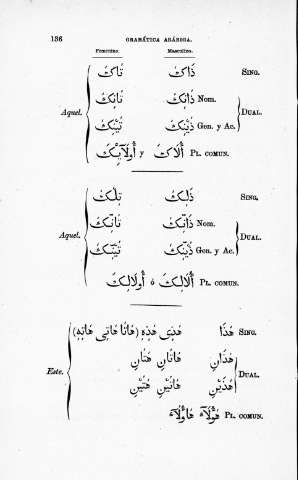 136 GRAMÁTICA ARÁBIGA.
Femenino. Masculino.
ذَاكَ تَاكَ SING.
ذَانِكَ تَانِكَ Nom.
Aquel. DUAL.
ذَيْنِكَ تَيْنِكَ Gen. y Ac.
أُلَاكَ y أُولَآئِكَ PL. COMUN.
ذَلِكَ تِلْكَ SING.
ذَانِّكَ تَانِّكَ Nom.
Aquel. DUAL.
ذَيْنِّكَ تَيْنِّكَ Gen. y Ac.
أُلَالِكَ ó أُولَالِكَ PL. COMUN.
هَذَا هَذِى هَذِهِ (هَاتَا هَاتِى هَاتِهِ) SING.
هَذَانِ هَاتَانِ هَتَانِ
Este. DUAL.
هَذَيْنِ هَاتَيْنِ هَتَيْنِ
هَؤُلَآءِ هَاؤُلَآءِ PL. COMUN.